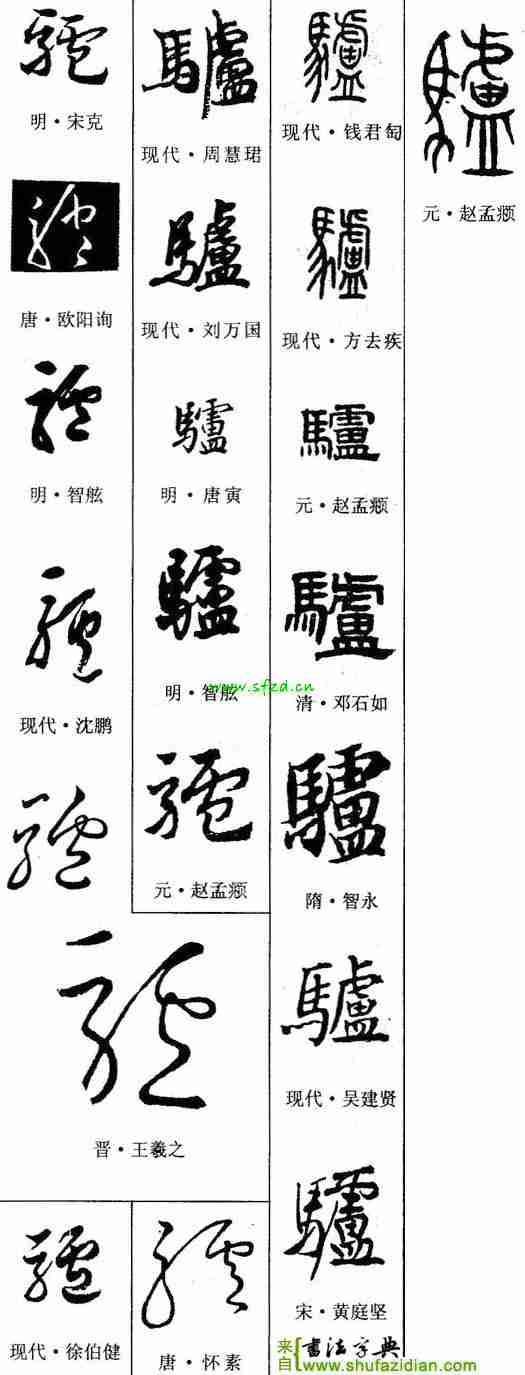 驢
明·宋克
驢
唐·欧阳询
驢
明·智舷
驢
现代·沈鹏
驢
驢
晋·王羲之
驢
现代·徐伯健
驢
现代·周慧珺
驢
现代·刘万国
驢
明·唐寅
驢
明·智舷
www.sfzd.cn
驢
元·赵孟𫖯
驢
唐·怀素
驢
现代·钱君匋
驢
现代·方去疾
驢
元·赵孟𫖯
驢
清·邓石如
驢
隋·智永
驢
现代·吴建贤
驢
宋·黄庭坚
驢
元·赵孟𫖯
来自 书法字典
www.shufazidian.com